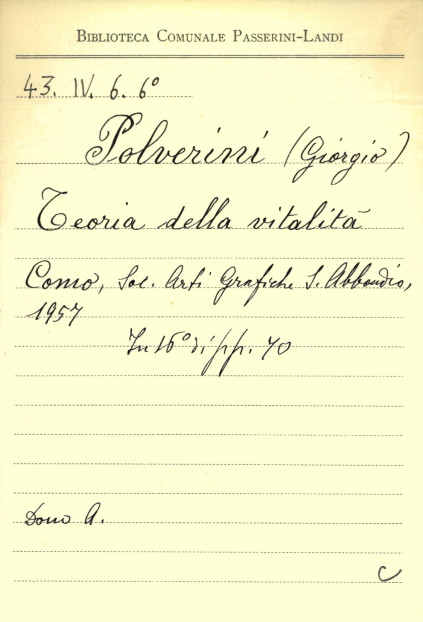 BIBLIOTECA COMUNALE PASSERINI-LANDI
43. IV. 6. 6°
Polverini (Giorgio)
Teoria della vitalità
Como, Soc. Arti Grafiche S. Abbondio,
1957
In 16° di pp. 70
Dono A.
C